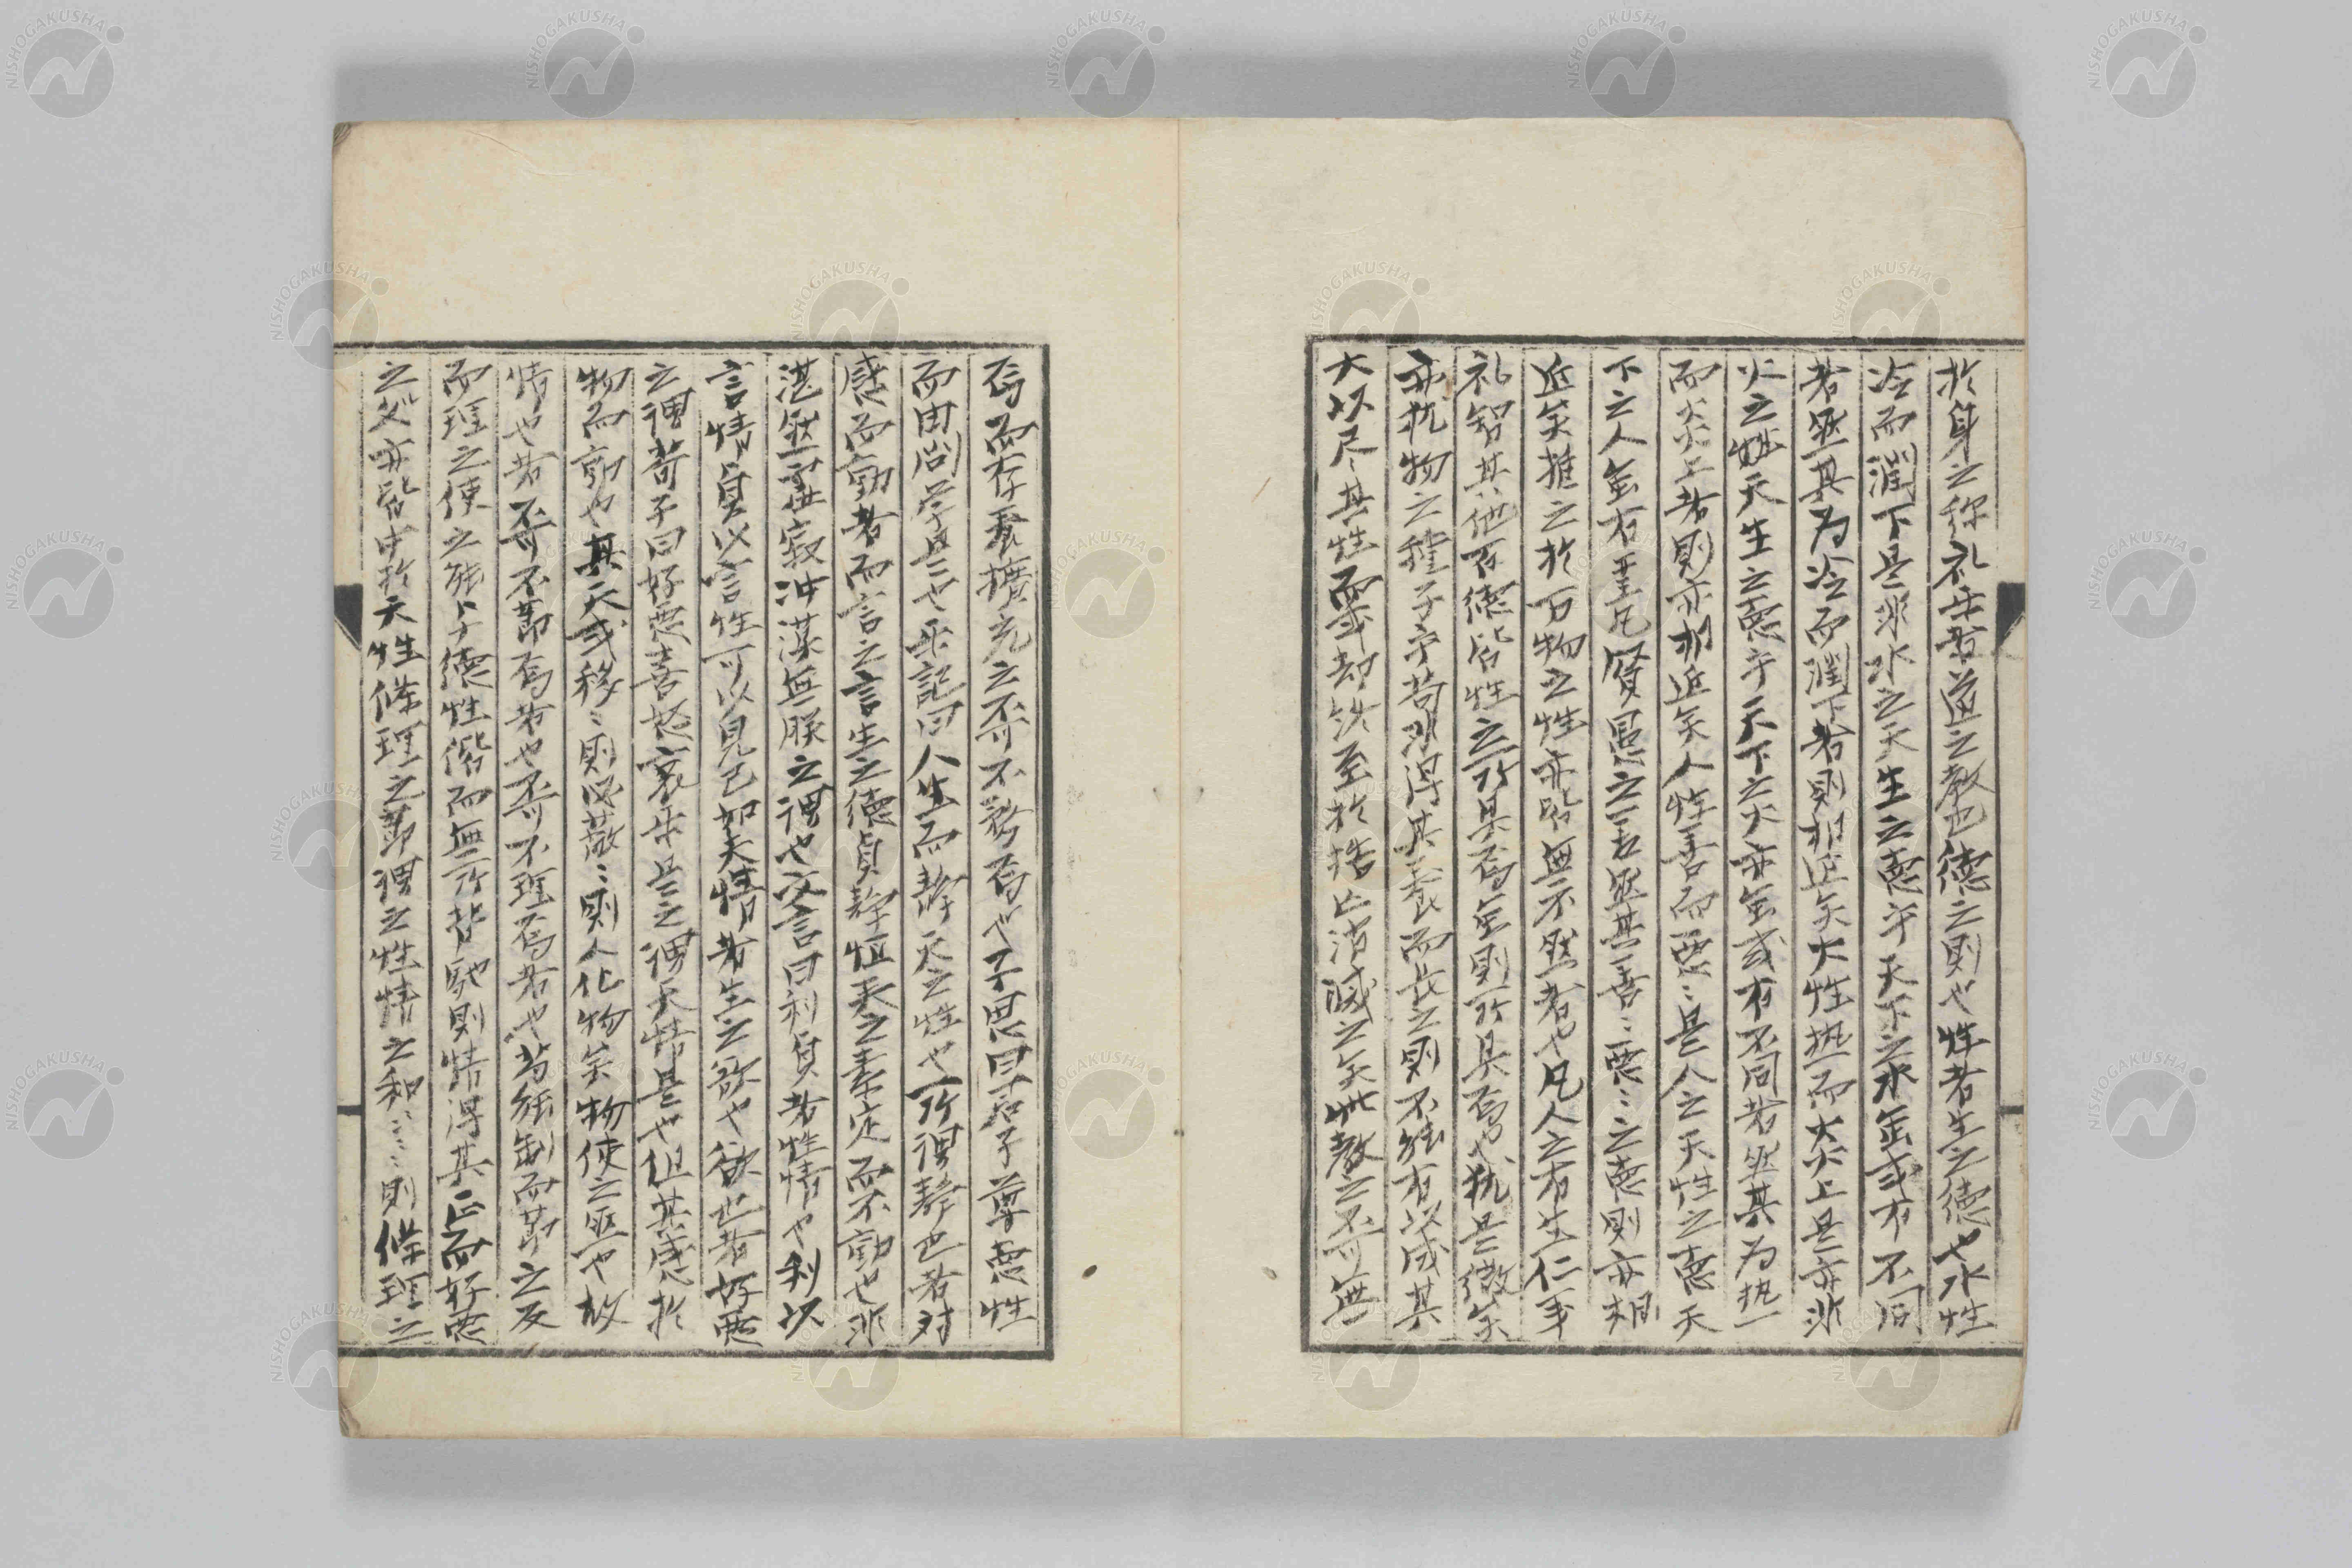 於身之称礼楽者道之教也徳之則也性者生之徳也水性
冷而潤下是非水之天生之悳乎天下之水虽或有不同
若然其為冷而潤下者則相近矣火性热而炎上是亦非
火之性天生之悳乎天下之火亦虽或有不同若然其為热
而炎上者則亦相近矣人性善而悪〻是人之天性之悳天
下之人虽有聖凡賢愚之
近矣推之於万物之性亦皆無不然者也凡人之有生仁義
礼智其他百徳皆性之所具焉虽則所具焉也犹是微矣
亦犹物之種子乎苟非得其養而長之則不能有以成其
大以尽其性而或却
焉而存養擴充之不可不務焉也子思曰君子尊悳性
而由問学是也楽記曰人生而静天之性也所谓静也者対
感而動者而言之言生之徳貞静恒天之素定而不動也非
湛然虚寂冲漠無朕之谓也文言曰利貞者性情也利以
言情貞以言性可以見已如夫情者生之欲也欲也者好悪
之谓荀子曰好悪喜怒哀楽是之谓天情是也但其感於
物而動也其天或移〻則必蔽〻則人化物矣物使之然也故
情也者不可不節焉者也不可不理焉者也苟能制而節之反
而理之使之能与徳性偕而無所背馳則情得其正而好悪
之発亦皆中於天性條理之節谓之性情之和〻〻〻則條理之